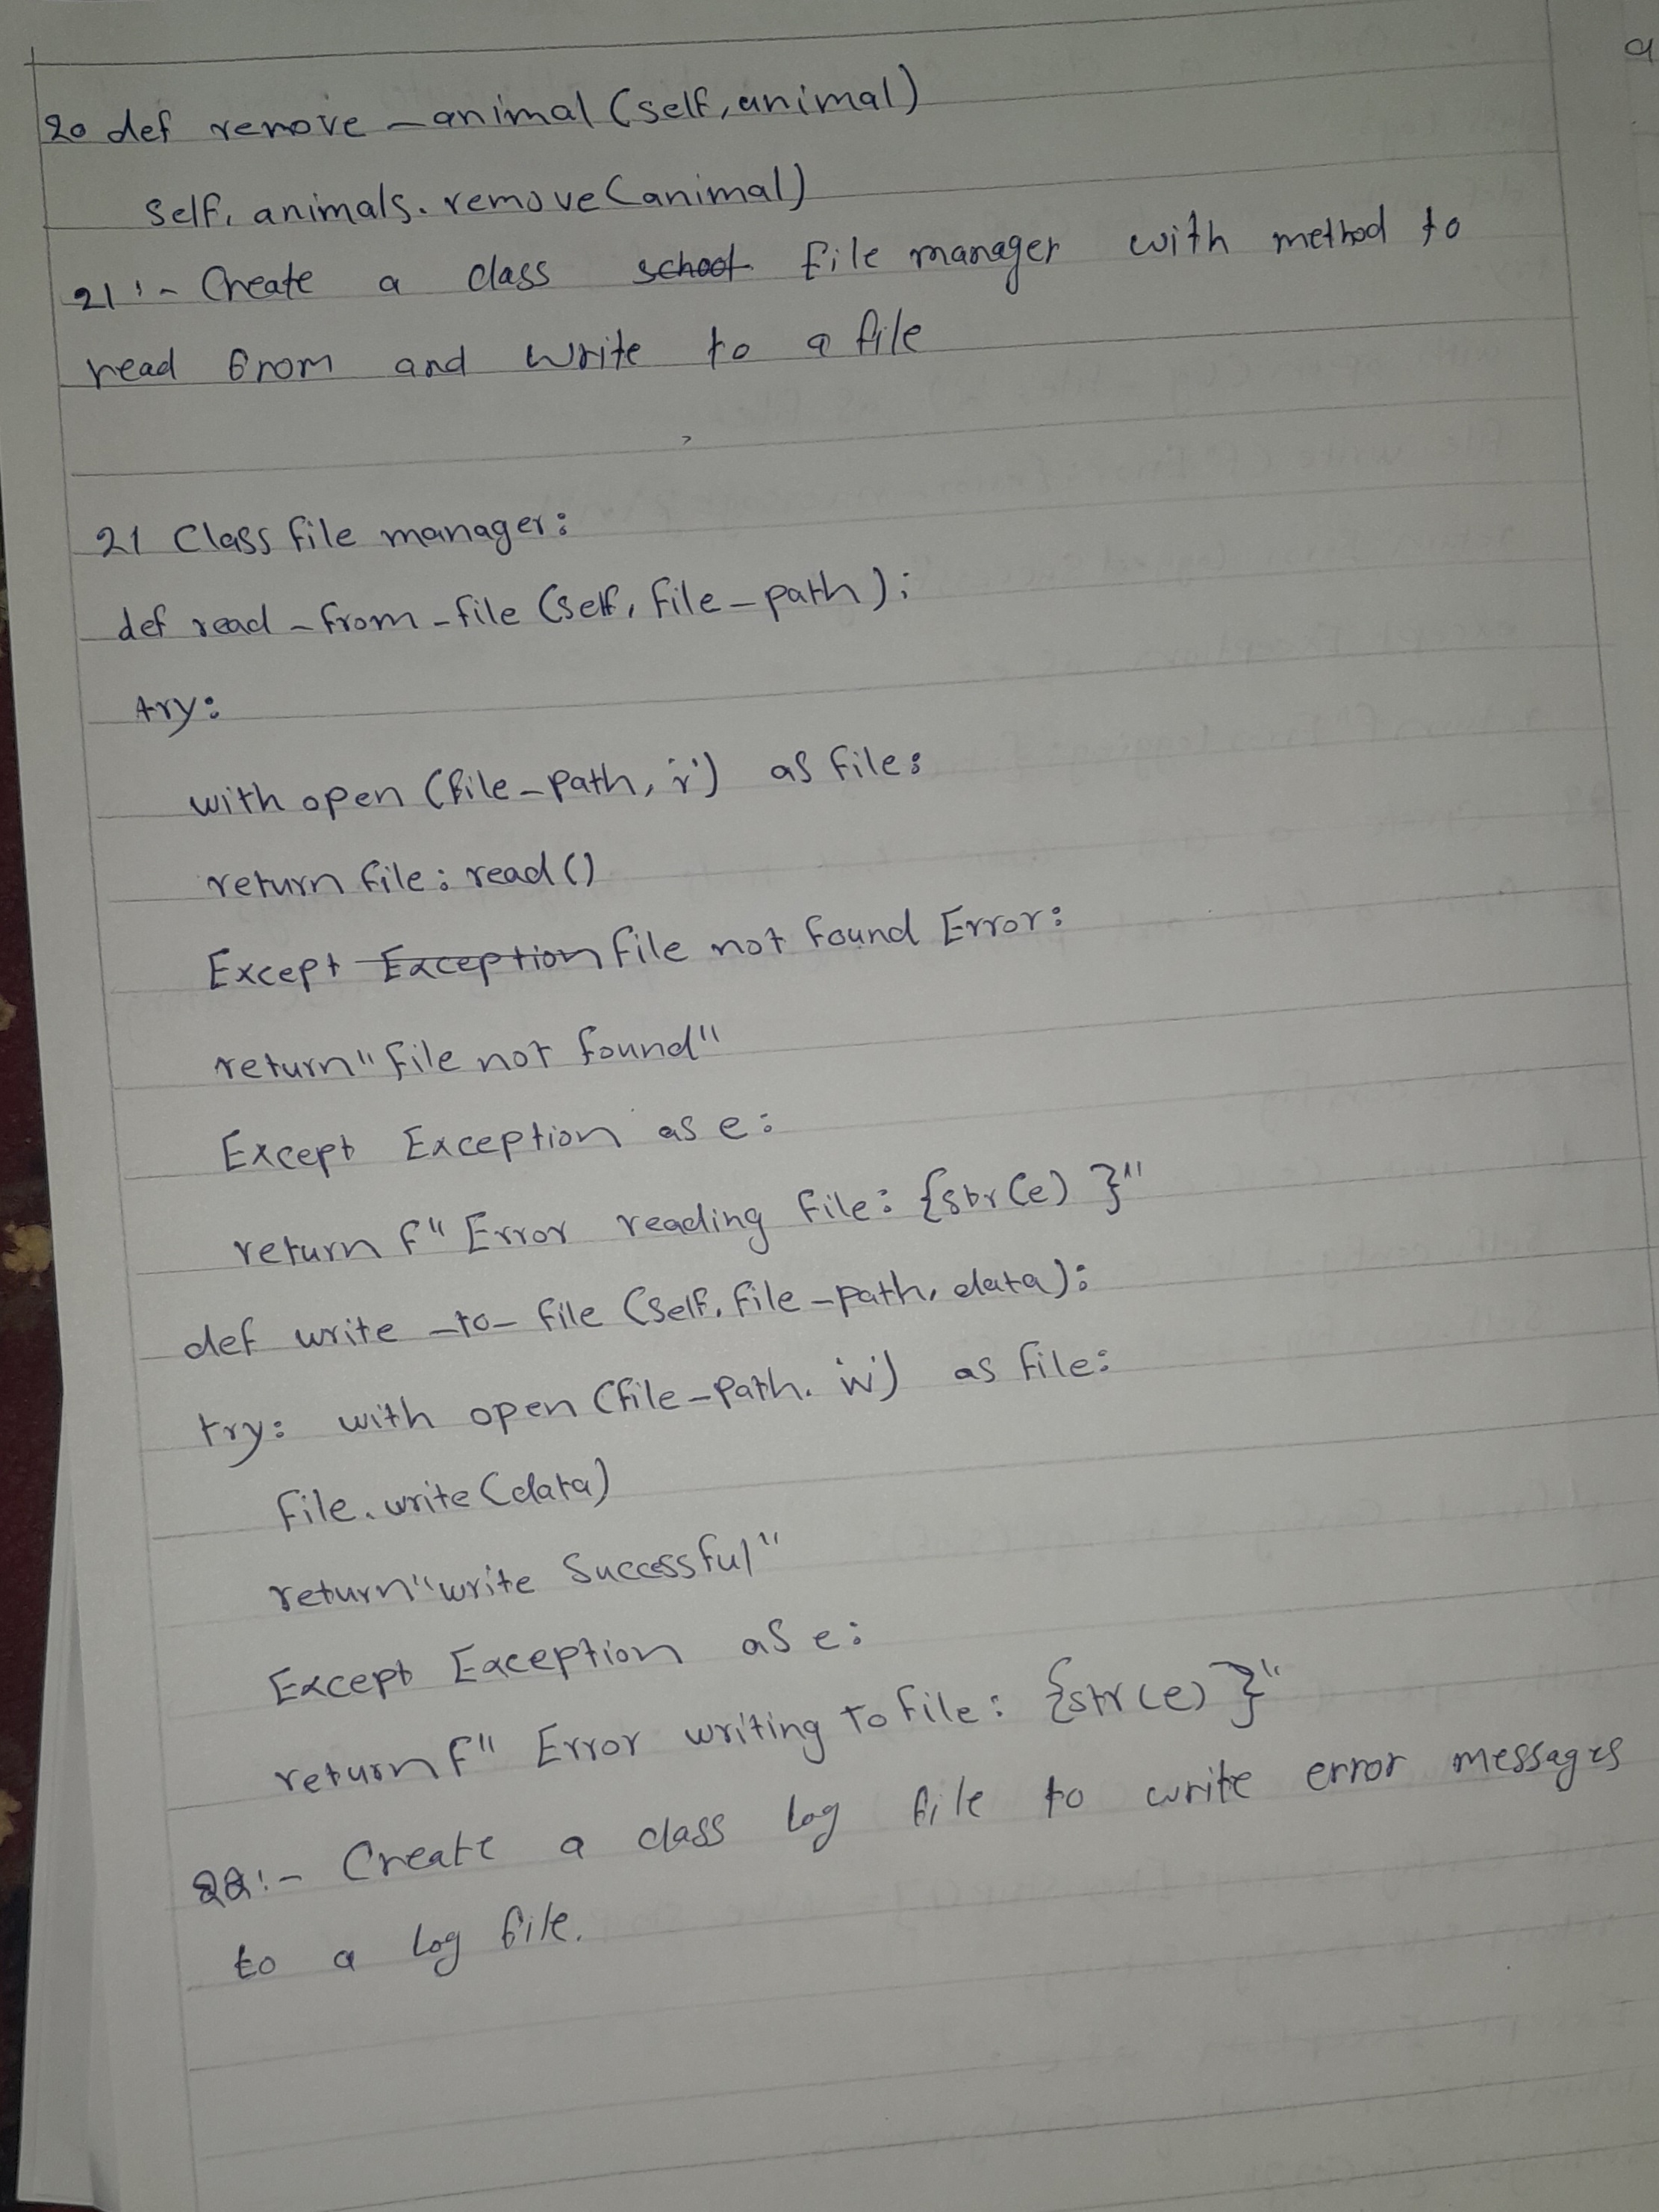 20 def remove_animal (self, animal)
self. animals. remove (animal)
21:- Create a class school file manager with method to
read from and write to a file
21 Class file manager:
def read_from_file (self, file_path):
try:
with open (file_path, 'r') as file:
return file: read ()
Except Exception file not found Error:
return "file not found"
Except Exception as e:
return f" Error reading file: {str(e) }"
def write_to_file (self, file_path, data):
try: with open (file_path. 'w') as file:
file. write (data)
return "write Successful"
Except Exception as e:
return f" Error writing to file: {str(e) }"
22:- Create a class log file to write error messages
to a log file.